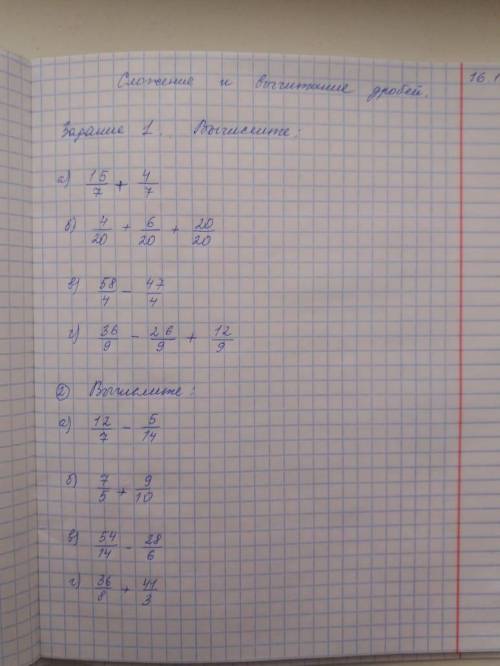 Сложение и вычитание дробей.
16.1
Задание 1. Вычислите:
а) 15/7 + 4/7
б) 4/20 + 6/20 + 20/20
в) 58/4 - 47/4
г) 36/9 - 26/9 + 12/9
② Вычислите:
а) 12/7 - 5/14
б) 7/5 + 9/10
в) 54/14 - 28/6
г) 36/8 + 41/3